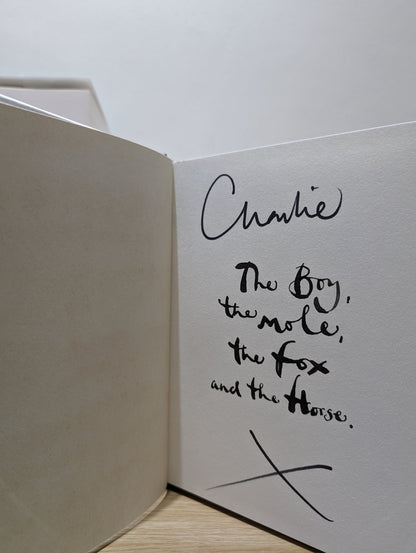 Charlie
The Boy,
the mole,
the fox
and the Horse.
X